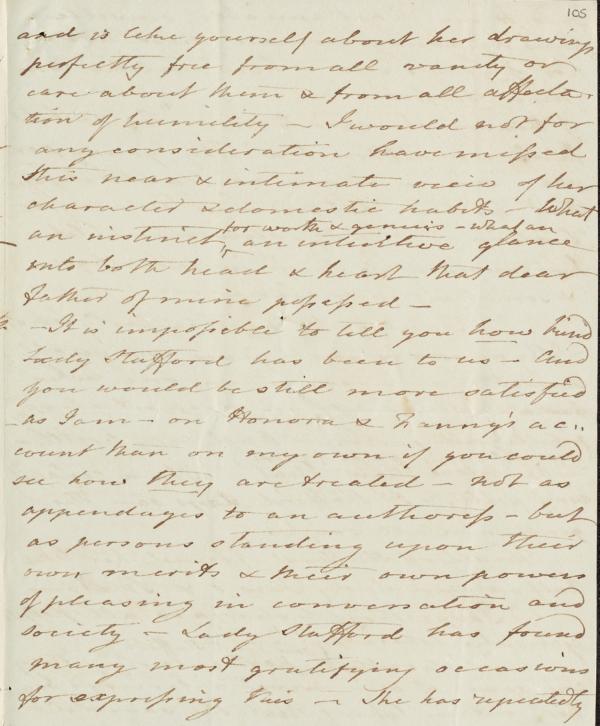 105
and is like yourself about her drawings
perfectly free from all vanity or
care about them & from all affecta-
tion of humility – I would not for
any consideration have missed
this near & intimate view of her
character & domestic habits – What
for worth & genius – what an
an instinct, an intuitive glance
into both head & heart that dear
father of mine possessed –
– It is impossible to tell you how kind
Lady Stafford has been to us – and
you would be still more satisfied
– as I am – on Honora & Fanny's ac..
count than on my own if you could
see how they are treated – not as
appendages to an authoress – but
as persons standing upon their
own merits & their own powers
of pleasing in conversation and
society – Lady Stafford has found
many most gratifying occasions
for expressing this – She has repeatedly